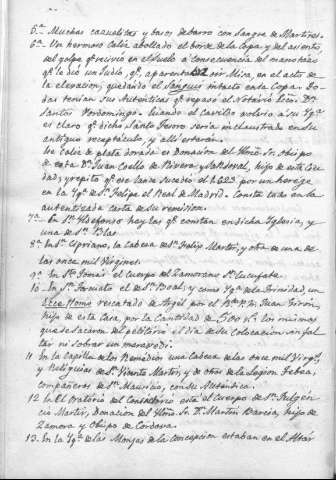 5ª Muchas caxualitas y basos de barro con Sangre de Martires.
6ª Un hermoso Caliz abollado el borde de la Copa y del asiento
del golpe qᵉ recivió en el Suelo a consecuencia del manotazo
qᵉ le dio un Judio, qᵉ aparentaba oir Misa, en el acto de
la elevacion, quedando el Sanguis intacto en la Copa. To-
das tenian sus Autenticas qᵉ repasó el Notario Licᵈᵒ Dⁿ
Santos Perdomingo. Quando el Carildo volvio a su Ygª
es claro qᵉ dicho Santo Tesoro seria inclaustrado en su
antiguo receptáculo, y alli estarán.
La Caliz de plata dorada es Donacion del Yllmo. Sr. Obispo
de esta Dⁿ Juan Coello de Rivera y Sandoval, hijo de esta Ciu
dad, y repito qᵉ ese lance sucedió el 1623 por un herege
en la Ygª de Sⁿ Felipe el Real de Madrid. Consta todo en la
autentizada carta de su remision.
7ª En Sⁿ Yldefonso hay las qᵉ constan en dicha Yglesia, y
una de Sⁿ Blas.
8ª En Sⁿ Cipriano, la Cabeza de Sⁿ Felix Martir, y otra de una de
las once mil Virgines
9ª En Sⁿ Tomás el cuerpo del Zamorano Sⁿ Cucufate.
10 En Sⁿ Torcuato el de Sⁿ Boal; y como Ygª de la Trinidad, un
Ecce Homo rescatado de Argél por el R. P. M. Juan Giron,
hijo de esta Casa, por la Cantidad de 500 rˢ. los mismos
que se sacaron del petitorio el dia de su Colocacion sin fal
tar ni sobrar un maravedi.
11 En la Capilla de los Remedios una Cabeza de las once mil Virgˢ,
y Reliquias de Sⁿ Vicente Martir, y de otros de la Legion Tebea,
compañeros de Sⁿ Mauricio, con su Autentica.
12 En El Oratorio del Consistorio está el Cuerpo de Sⁿ Fulgen
cio Martir, Donacion del Yllmo. Sr. D. Martin Barcia, hijo de
Zamora y Obispo de Cordova.
13. En la Ygª de las Monjas de la Concepcion estaban en el Altár